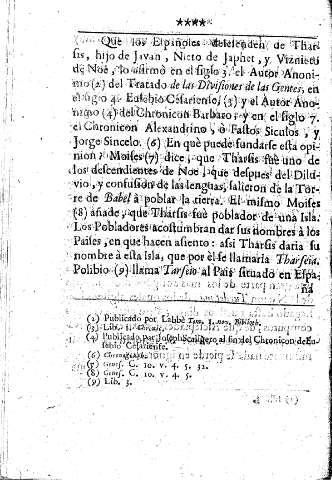 ****
Que los Españoles desciendan de Thar-
sis, hijo de Javan, Nieto de Japhet, y Viznieto
de Noè, lo afirmò en el siglo 3. el Autor Anoni-
mo (2) del Tratado de las Divisiones de las Gentes, en
el siglo 4. Eusebio Cesariense, (3) y el Autor Ano-
nimo (4) del Chronicon Barbaro, y en el siglo 7.
el Chronicon Alexandrino, ò Fastos Siculos, y
Jorge Sincelo. (6) En què puede fundarse esta opi-
nion? Moises (7) dice, que Tharsis fue uno de
los descendientes de Noe, que despues del Dilu-
vio, y confusion de las lenguas, salieron de la Tor-
re de Babèl à poblar la tierra. El mismo Moises
(8) añade, que Tharsis fuè poblador de una Isla.
Los Pobladores acostumbran dar sus nombres à los
Países, en que hacen asiento: asi Tharsis daria su
nombre à esta Isla, que por èl se llamaria Tharseia.
Polibio (9) llama Tarseio al País situado en Espa-
ña
(2) Publicado por Labbè Tom. 1. nov. Biblioth.
(3) Lib. 1. Chronic.
(4) Publicado por Joseph Scaligero al fin del Chronicon de Eu-
sebio Cesariense.
(6) Chronograph.
(7) Genes. C. 10. v. 4. 5. 32.
(8) Genes. C. 10. v. 4. 5.
(9) Lib. 3.